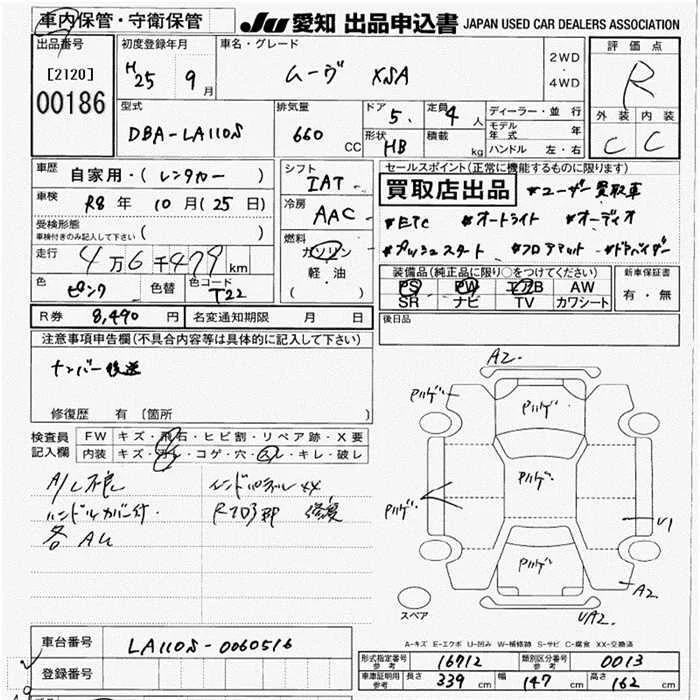 車内保管・守衛保管
JU 愛知 出品申込書 JAPAN USED CAR DEALERS ASSOCIATION
出品番号
[2120]
00186
初度登録年月
H25 9月
車名・グレード
ムーヴ XSA
2WD
・
4WD
評価点
R
外装 内装
C C
型式
DBA-LA110S
排気量
660 CC
ドア 5.
定員 4人
形状 HB
積載 kg
ディーラー・並行
モデル年式 年
ハンドル 左・右
車歴
自家用・(レンタカー)
車検
R8年 10月(25日)
受検形態
車検付きのみ記入して下さい ( )
走行
4万6千479km
色 ピンク
色替
色コード T22
シフト
IAT
冷房
AAC
燃料
ガソリン
軽・油
( )
セールスポイント(正常に機能するものに限ります)
買取店出品 #ユーザー買取車
#ETC #オートライト #オーディオ
#プッシュスタート #フロアマット #ドアバイザー
装備品(純正品に限り○をつけてください)
PS PW エアB AW
SR ナビ TV カワシート
新車保証書
有・無
R券 8,490円
名変通知期限 月 日
後日品
注意事項申告欄(不具合内容等は具体的に記入して下さい)
ナンバー後送
修復歴 有 [箇所 ]
検査員
記入欄
FW キズ・飛石・ヒビ割・リペア跡・X要
内装 キズ・汚レ・コゲ・穴・スレ・キレ・破レ
A/L不良
ハンドルカバー付・
各AU
インドパネルXX
Rフロア部 修復
A2
Pハゲ
Pハゲ
Pハゲ
Pハゲ
Pハゲ
U1
A2
UA2
スペア
A-キズ E-エクボ U-凹み W-補修跡 S-サビ C-腐食 XX-交換済
車台番号 LA110S-0060516
登録番号
形式指定番号 参考 16712
類別区分番号 参考 0013
車庫証明用 参考 長さ 339 幅 147 高さ 162 cm